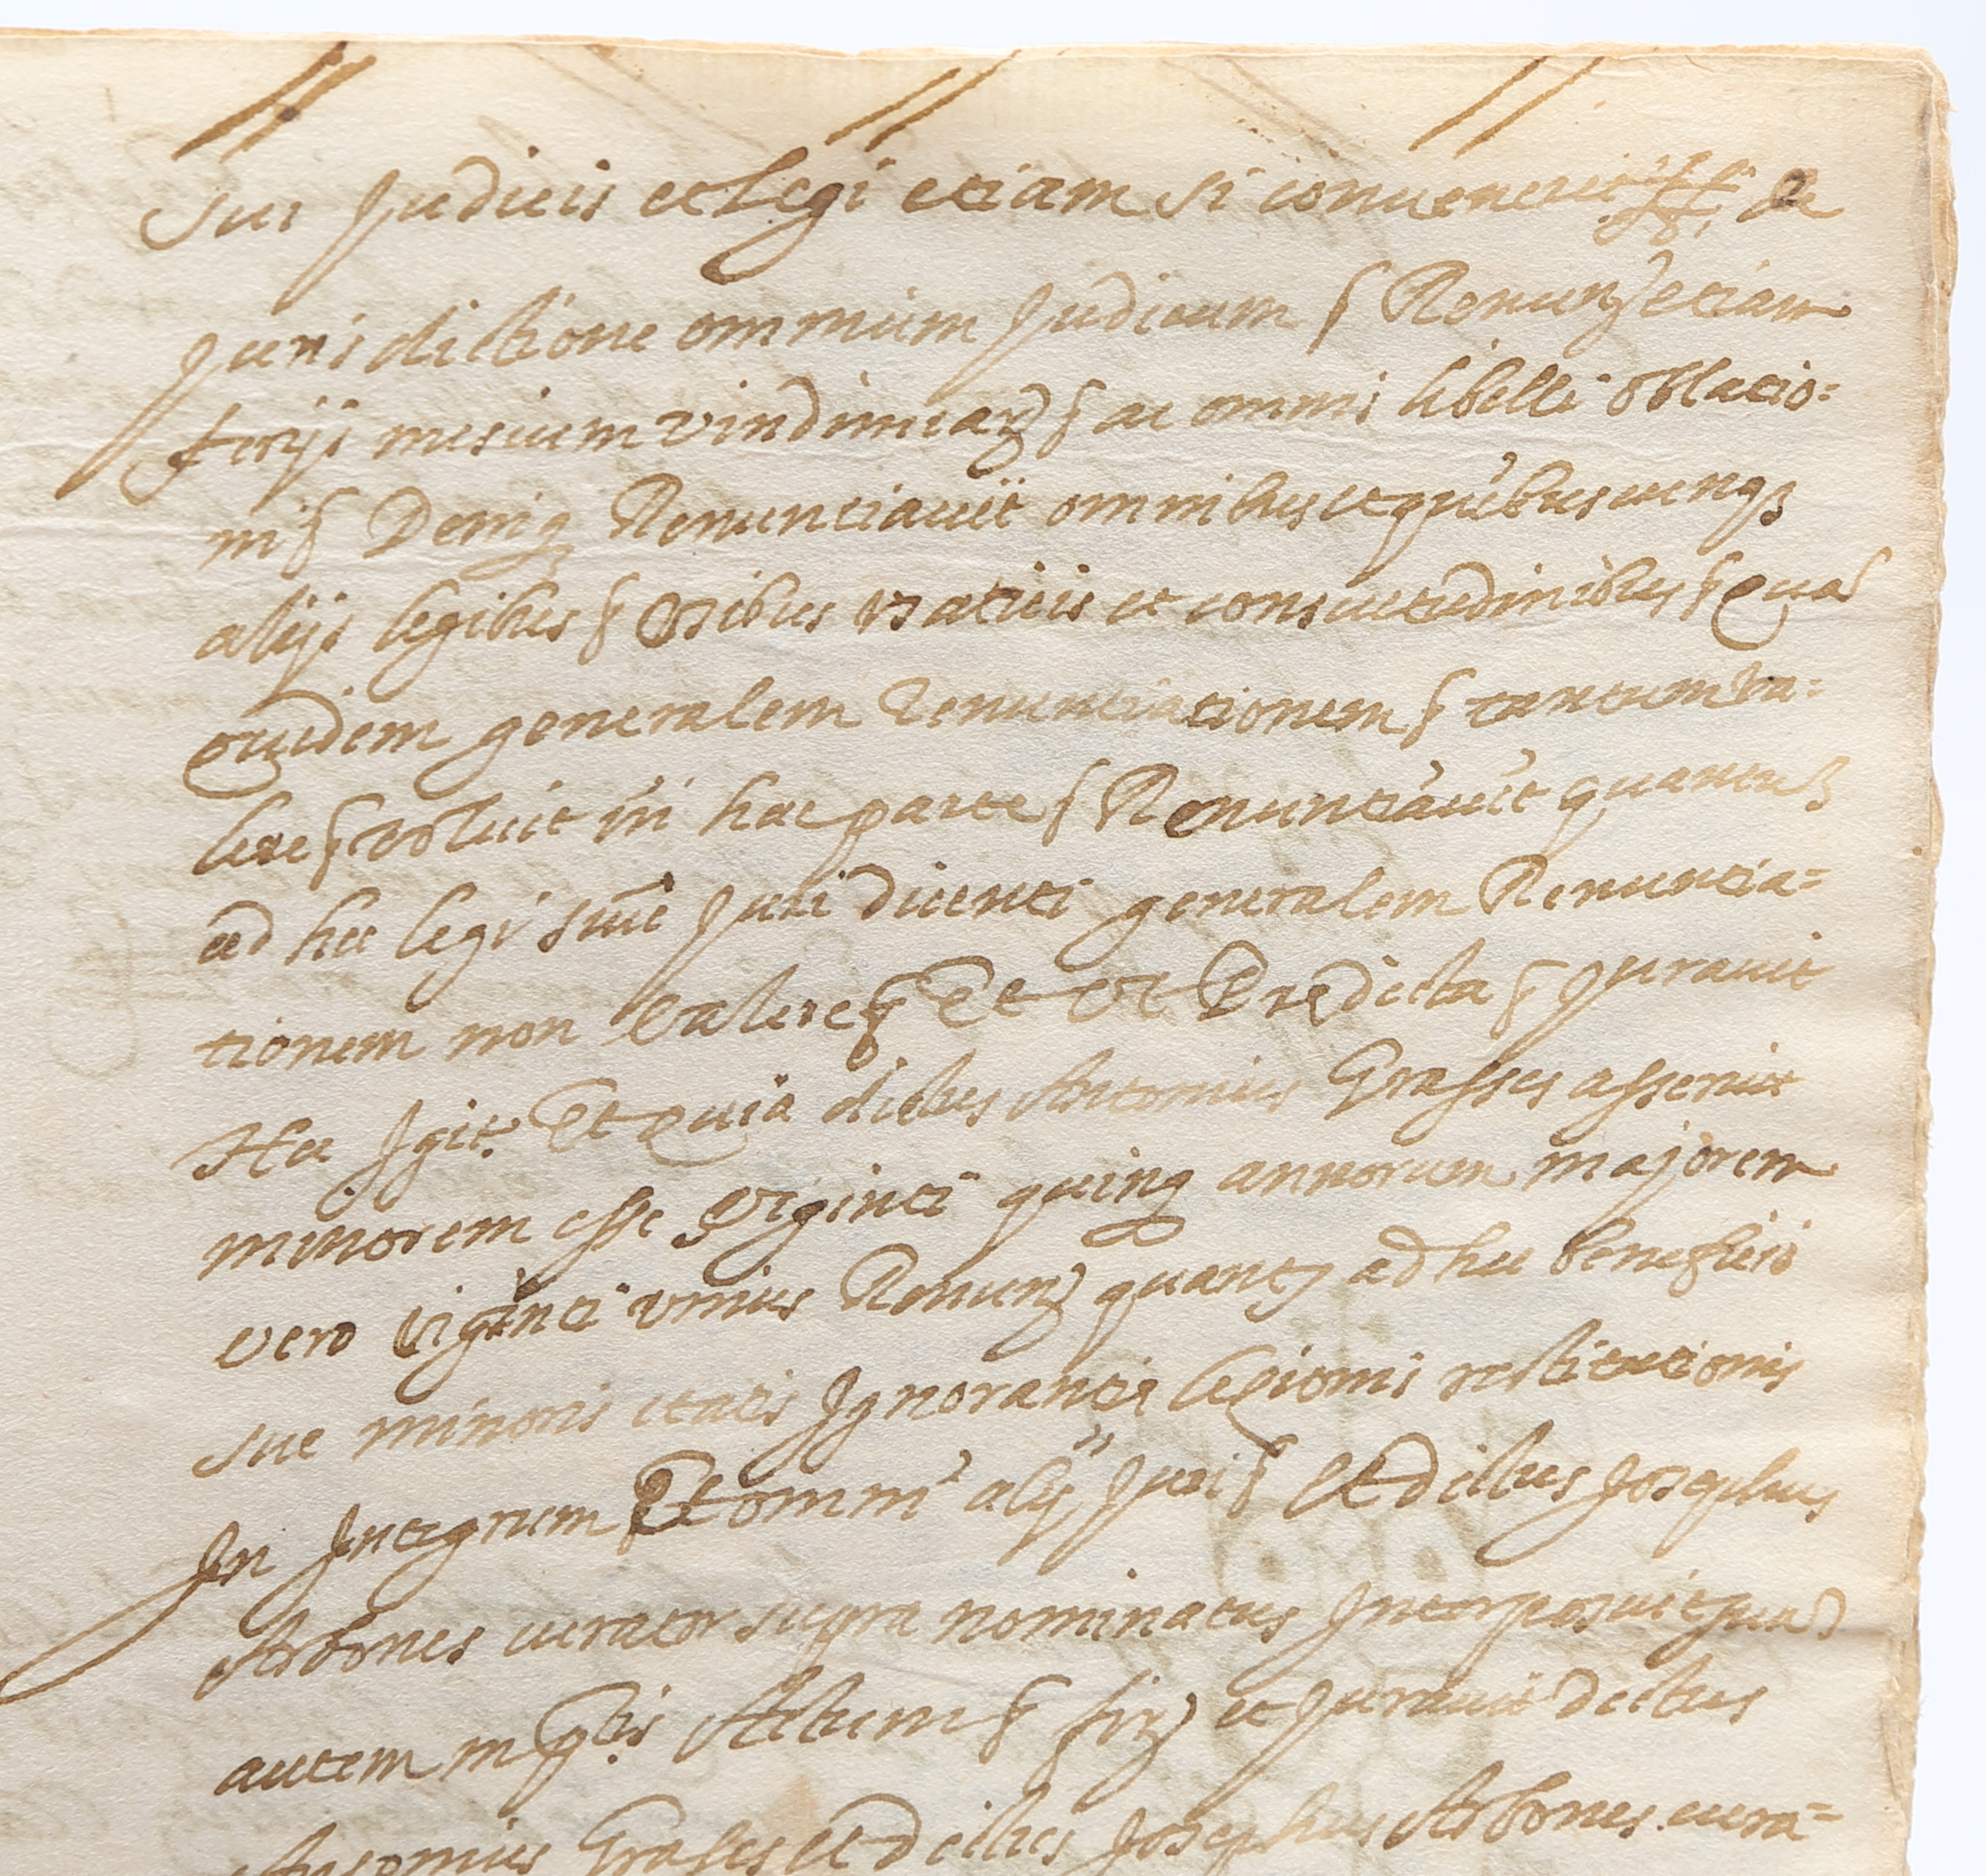 sui Judicis et Legi etiam si convenerit ff. de
Jurisdictione omnium Judicum § Renunz etiam
ferijs mesium vindimiarz § ac omnis libelli oblatio=
ni § Deniq Renuntiavit omnibus et quibuscunq3
alijs legibus § Usibus usaticis et consuetudinibus § Quas
quidem generalem Renuntiationem § tantum va=
lere § voluit in hac parte § Renuntiavit quantu3
ad hec legi sive Juri dicenti generalem Renuntia=
tionem non valere § Et ut Predicta § Juravit
Hec Igit. Et quia dictus Antonius Grasses asseruit
minorem esse Viginti quinq annorum majorem
vero viginti unius Renunz quant ad hec beneficio
sue minoris etatis Ignorantie lesionis restitutionis
In Integrum § Et omni alij Juri § Et dictus Josephus
Arbones curator supra nominatus Interposuit
autem in Actum § firz et Juravit dictus
Antonius Grasses Et dictus Josephus Arbones cura=